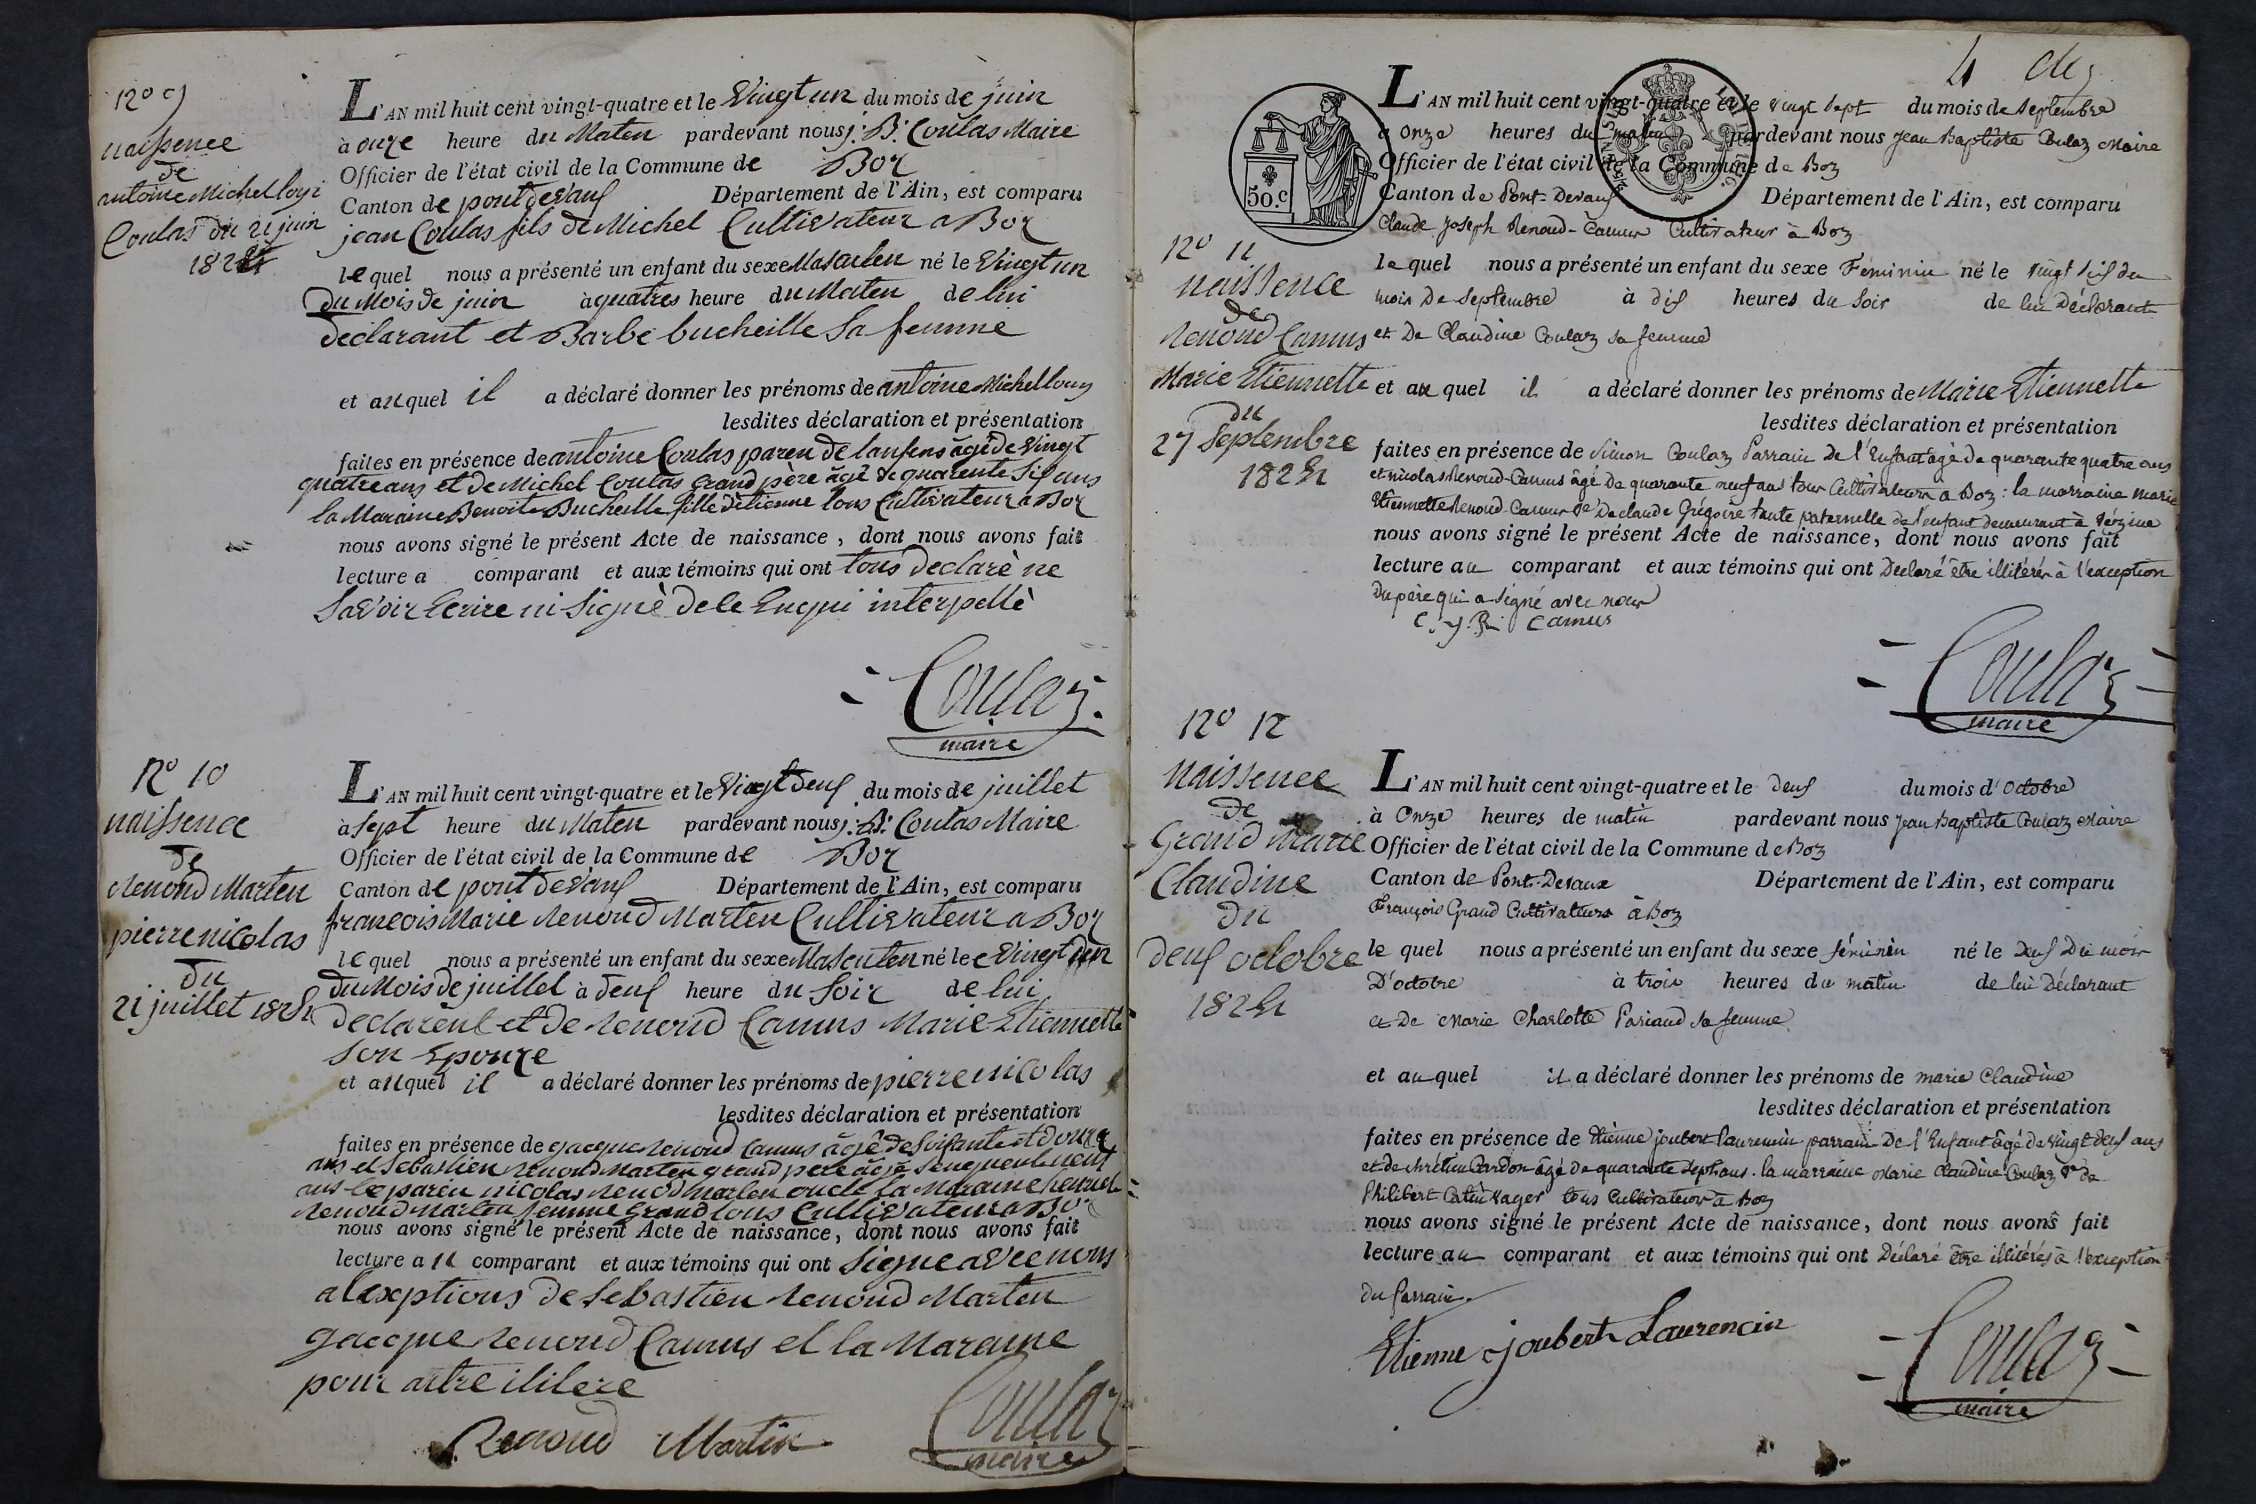 N° 9
naissence
de
antoine Michel loui
Coulas du 21 juin
1824
L'AN mil huit cent vingt-quatre et le Vingt un du mois de juin
à onze heure du Maten pardevant nous j. B. Coulas Maire
Officier de l'état civil de la Commune de Boz
Canton de pont devaux Département de l'Ain, est comparu
jean Coulas fils de Michel Cultivateur a Boz
le quel nous a présenté un enfant du sexe Masculen né le Vingt un
du Mois de juin à quatres heure du Maten de lui
declarant et Barbe bucheille Sa femme
et au quel il a déclaré donner les prénoms de antoine Michel
lesdites déclaration et présentation
faites en présence de antoine Coulas paren de âgé de Vingt
quatre ans et de Michel Coulas Grand père âgé de quarente Six ans
la Maraine Benoite Bucheille fille d'etienne tous Cultivateur a Boz
nous avons signé le présent Acte de naissance, dont nous avons fait
lecture a comparant et aux témoins qui ont tous declarè ne
Savoir Ecrire ni Signè de le Enqui interpellè
Coulaz
maire
N° 10
naissence
de
Renoud Marten
pierre nicolas
du
21 juillet 1824
L'AN mil huit cent vingt-quatre et le Vingt deux du mois de juillet
à Sept heure du Maten pardevant nous j. B. Coulas Maire
Officier de l'état civil de la Commune de Boz
Canton de pont devaux Département de l'Ain, est comparu
francois Marie Renoud Marten Cultivateur a Boz
le quel nous a présenté un enfant du sexe Masculen né le Vingt un
du Mois de juillet à deux heure du Soir de lui
declarent et de Renoud Camus Marie Etiennette
Son Epouze
et au quel il a déclaré donner les prénoms de pierre nicolas
lesdites déclaration et présentation
faites en présence de gacque Renoud Camus âgé de Soixante et douze
ans et Sebastien Renoud Marten grand pere âgé
ans le paren nicolas Renoud Marten oncle la Maraine
Renoud Marten femme Grand tous Cultivateur a Boz
nous avons signé le présent Acte de naissance, dont nous avons fait
lecture au comparant et aux témoins qui ont Signe avec nous
a l'exptions de Sebastien Renoud Marten
gacque Renoud Camus et la Maraine
pour aitre ilitere
Renoud Martin
Coulaz
maire
4
50.c
N° 11
naissence
de
Renoud Camus
Marie Etiennette
du
27 Septembre
1824
L'AN mil huit cent vingt-quatre et le vingt Sept du mois de Septembre
à Onze heures du matin pardevant nous Jean Baptiste Coulaz Maire
Officier de l'état civil de la Commune de Boz
Canton de Pont-Devaux Département de l'Ain, est comparu
Claude Joseph Renoud-Camus Cultivateur à Boz
le quel nous a présenté un enfant du sexe Féminin né le vingt six du
mois De Septembre à dix heures du Soir de lui Déclarant
et De Claudine Coulaz sa femme
et au quel il a déclaré donner les prénoms de Marie Etiennette
lesdites déclaration et présentation
faites en présence de Simon Coulaz Parrain De l'Enfant âgé de quarante quatre ans
et nicolas Renoud-Camus âgé De quarante neuf ans tous Cultivateurs a Boz: la marraine marie
Etiennette Renoud-Camus Ve De claude Grégoire tante paternelle de l'enfant demeurant à
nous avons signé le présent Acte de naissance, dont nous avons fait
lecture au comparant et aux témoins qui ont Déclaré être illitérés à l'exception
du père qui a Signé avec nous
C. J. Camus
Coulaz
maire
N° 12
naissence
de
Grand Marie
Claudine
du
deux octobre
1824
L'AN mil huit cent vingt-quatre et le deux du mois d'Octobre
à Onze heures de matin pardevant nous Jean Baptiste Coulaz Maire
Officier de l'état civil de la Commune de Boz
Canton de Pont-Devaux Département de l'Ain, est comparu
François Grand Cultivateur à Boz
le quel nous a présenté un enfant du sexe féminin né le Deux Du mois
D'octobre à trois heures du matin de lui Déclarant
et De Marie Charlotte Pariaud sa femme
et au quel il a déclaré donner les prénoms de marie Claudine
lesdites déclaration et présentation
faites en présence de Etienne joubert Laurencin parrain De l'Enfant âgé de Vingt deux ans
et de chrétien Cardon âgé De quarante Sept ans. la marraine Marie Claudine Coulaz Ve de
Philibert tous Cultivateurs à Boz
nous avons signé le présent Acte de naissance, dont nous avons fait
lecture au comparant et aux témoins qui ont Déclaré être illitérés à l'exception
du Parrain.
Etienne joubert Laurencin
Coulaz
maire